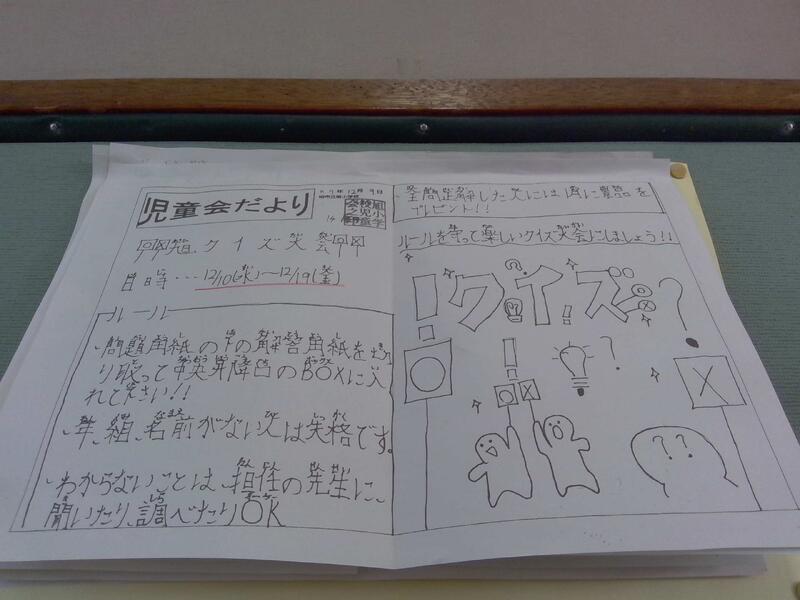 児童会だより
R7年12月9日
14
クイズ大会
日時・・・12/10(水)~12/19(金)
ルール
・問題用紙の下の解答用紙を切
り取って中央昇降口のBOXに入
れて下さい!!
・年、組、名前がない人は失格です。
・わからないことは、担任の先生に、
聞いたり、調べたりOK
全問正解した人には後に賞品を
プレゼント!!
ルールを守って楽しいクイズ大会にしましょう!!
クイズ